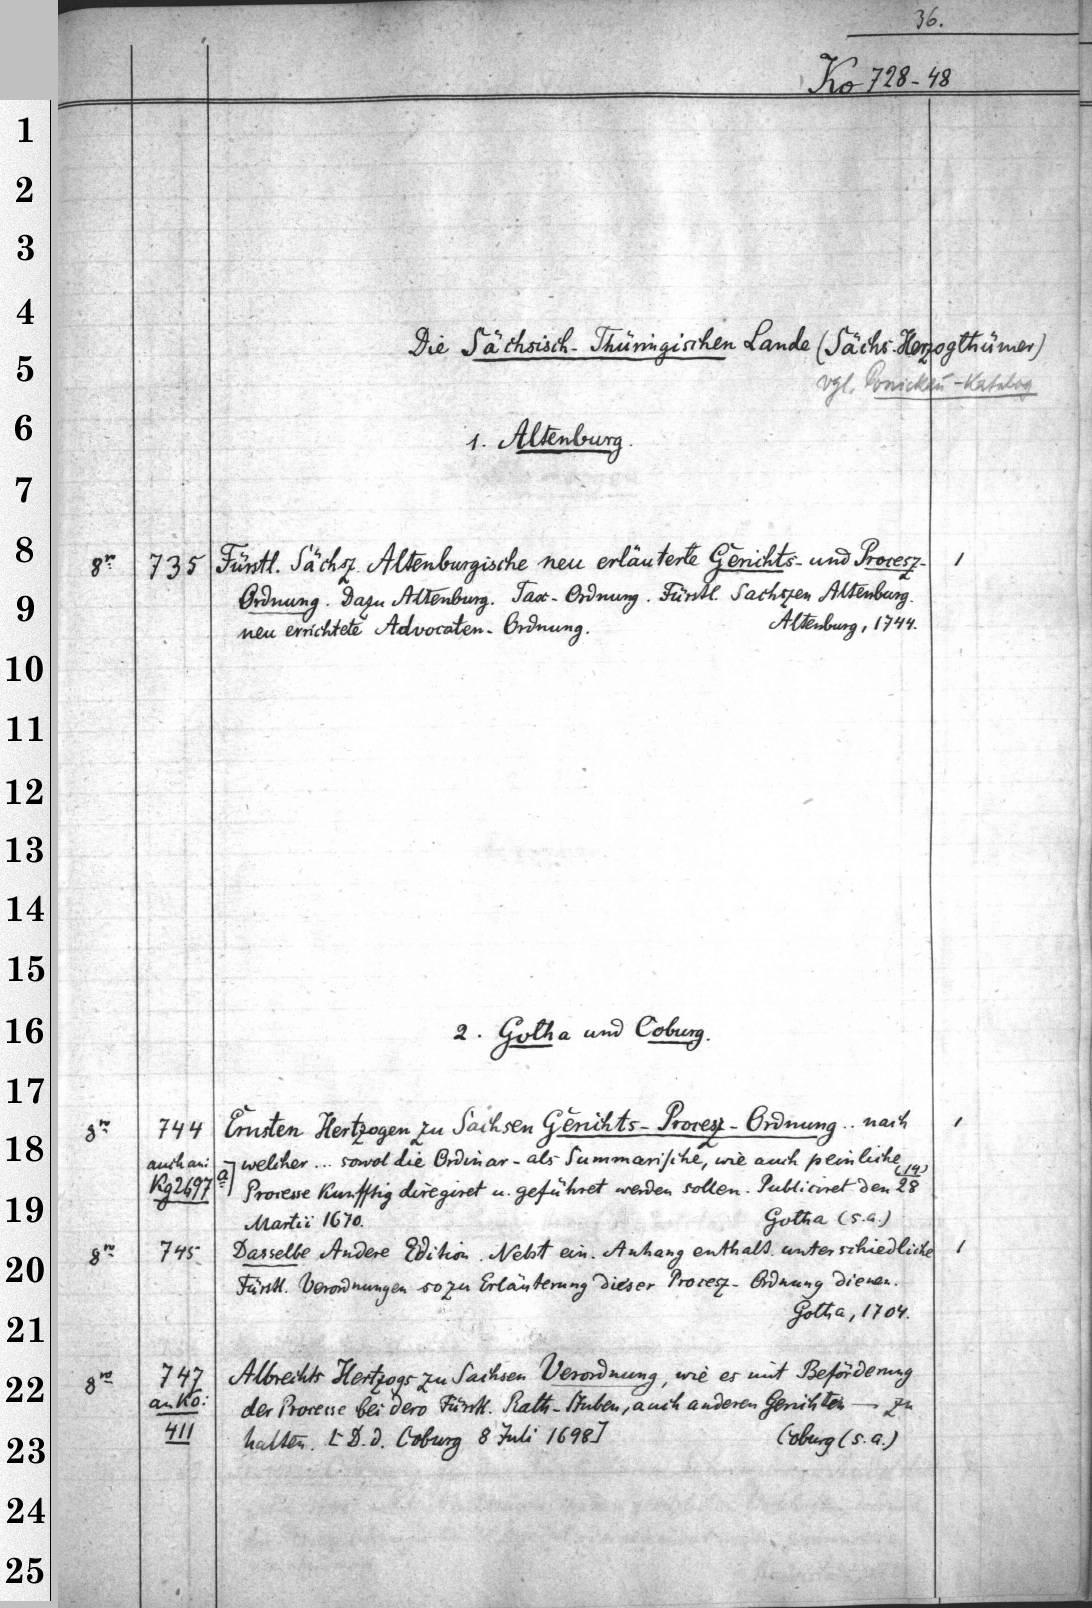 36.
Ko 728-48
1
2
3
4
Die Sächsisch-Thüringischen Lande (Sächs. Herzogthümer)
5
vgl. Ponickau-Katalog
6
1. Altenburg.
7
8
8vo 735 Fürstl. Sächsz. Altenburgische neu erläuterte Gerichts- und Procesz- 1
9
Ordnung. Dazu Altenburg. Tax-Ordnung. Fürstl. Sachszen Altenburg.
neu errichtete Advocaten-Ordnung. Altenburg, 1744.
10
11
12
13
14
15
16
2. Gotha und Coburg.
17
8vo 744 Ernsten Hertzogen zu Sachsen Gerichts-Procesz-Ordnung .. nach 1
18
auch an: welcher ... sowol die Ordinar- als Summarische, wie auch peinliche
Kg2697 a] Processe künfftig diregiret u. geführet werden sollen. Publiciret den (14) 28
19
Martii 1670. Gotha (s.a.)
8vo 745 Dasselbe Andere Edition. Nebst ein. Anhang enthalt. unterschiedliche 1
20
Fürstl. Verordnungen so zu Erläuterung dieser Procesz-Ordnung dienen.
21
Gotha, 1704.
22
8vo 747 Albrechts Hertzogs zu Sachsen Verordnung, wie es mit Beförderung
an Ko: der Processe bei dero Fürstl. Rath-Stuben, auch anderen Gerichten — zu
23
411 halten. [D. d. Coburg 8 Juli 1698] Coburg (s.a.)
24
25